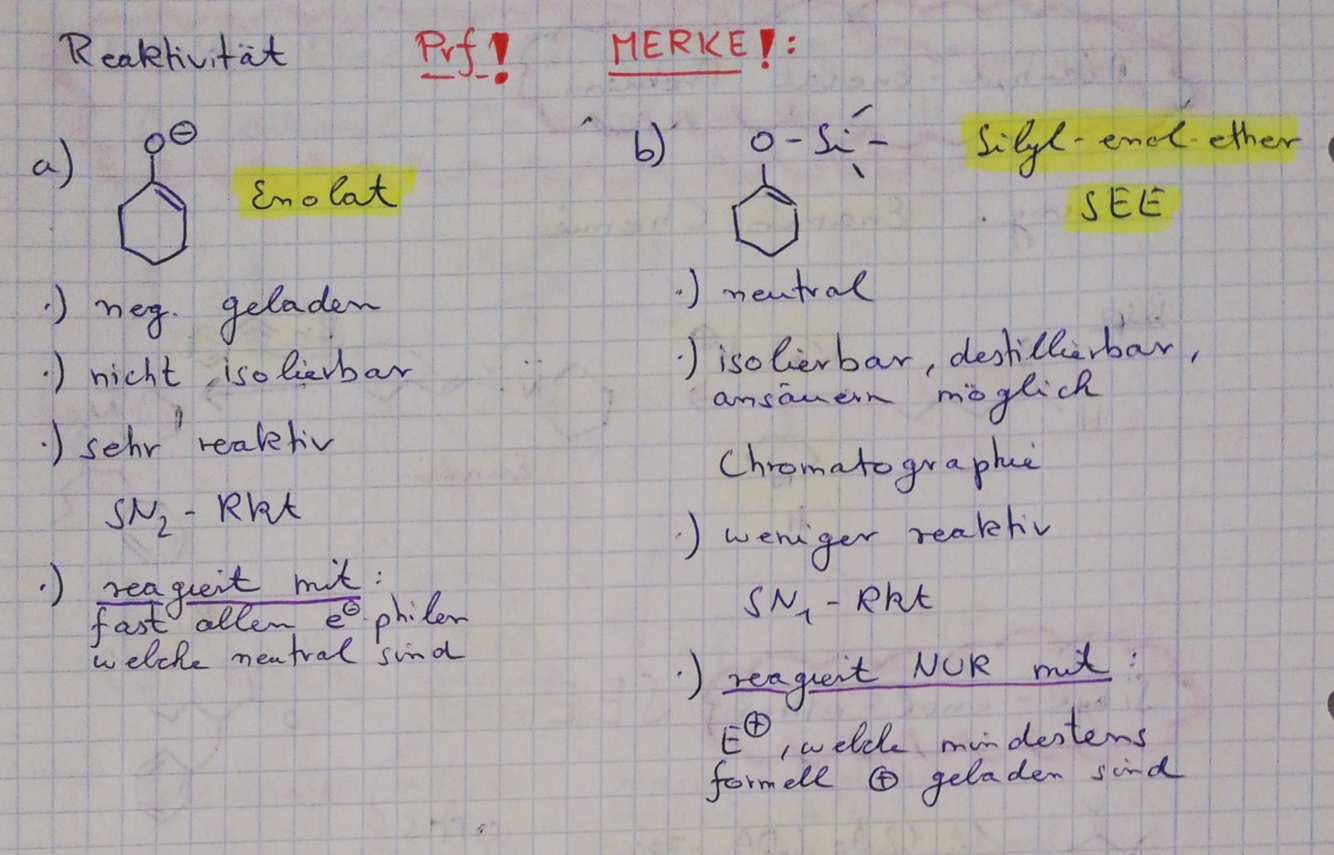 Reaktivität Prf! MERKE!:
a) O⊖
Enolat
·) neg. geladen
·) nicht isolierbar
·) sehr reaktiv
SN₂ - Rkt
·) reagiert mit:
fast allen e⊖philen
welche neutral sind
b) O-Si-
Silyl-enol-ether
SEE
·) neutral
·) isolierbar, destillierbar,
ansäuern möglich
Chromatographie
·) weniger reaktiv
SN₁ - Rkt
·) reagiert NUR mit:
E⊕, welche mindestens
formell ⊕ geladen sind